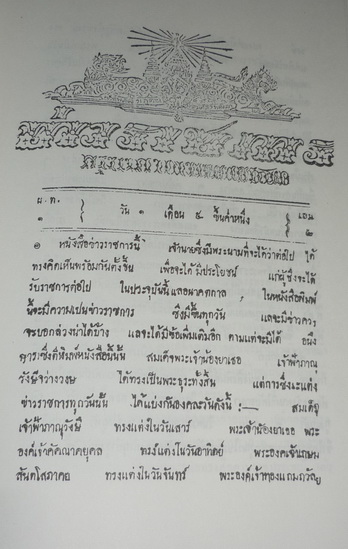 ผ. ท. วัน ๑ เดือน ๙ ขึ้นค่ำหนึ่ง เถน
๑ ๒
๏ หนังสือข่าวราชการนี้ เจ้านายซึ่งมีพระนามที่จะได้ว่าต่อไป ได้
ทรงคิดเห็นพร้อมกันตั้งขึ้น เพื่อจะได้มีประโยชน์ แก่ผู้ซึ่งจะได้
รับราชการต่อไป ในประจุบันนี้แลอนาคตกาล ในหนังสือพิมพ์
นี้จะมีความเปนข่าวราชการ ซึ่งมีขึ้นทุกวัน แลจะมีข่าวควร
จะบอกล่วงน่าได้บ้าง แลจะได้มีข้อเพิ่มเติมอีก ตามแต่จะมีได้ อนึ่ง
ธุระซึ่งตีพิมพ์หนังสือนี้นั้น สมเด็จพระเจ้าน้องยาเธอ เจ้าฟ้าภาณุ
รังษีสว่างวงษ ได้ทรงเป็นพระธุระทั้งสิ้น แต่การซึ่งจะแต่ง
ข่าวราชการทุกวันนั้น ได้แบ่งกันองคละวันดังนี้ :— สมเด็จ
เจ้าฟ้าภาณุรังษี ทรงแต่งในวันเสาร์ พระเจ้าน้องยาเธอ พระ
องค์เจ้าคัคณางคยุคล ทรงแต่งในวันอาทิตย์ พระองคเจ้าเกษม
สันตโสภาคย ทรงแต่งในวันจันทร์ พระองค์เจ้าทองแถมถวัลย